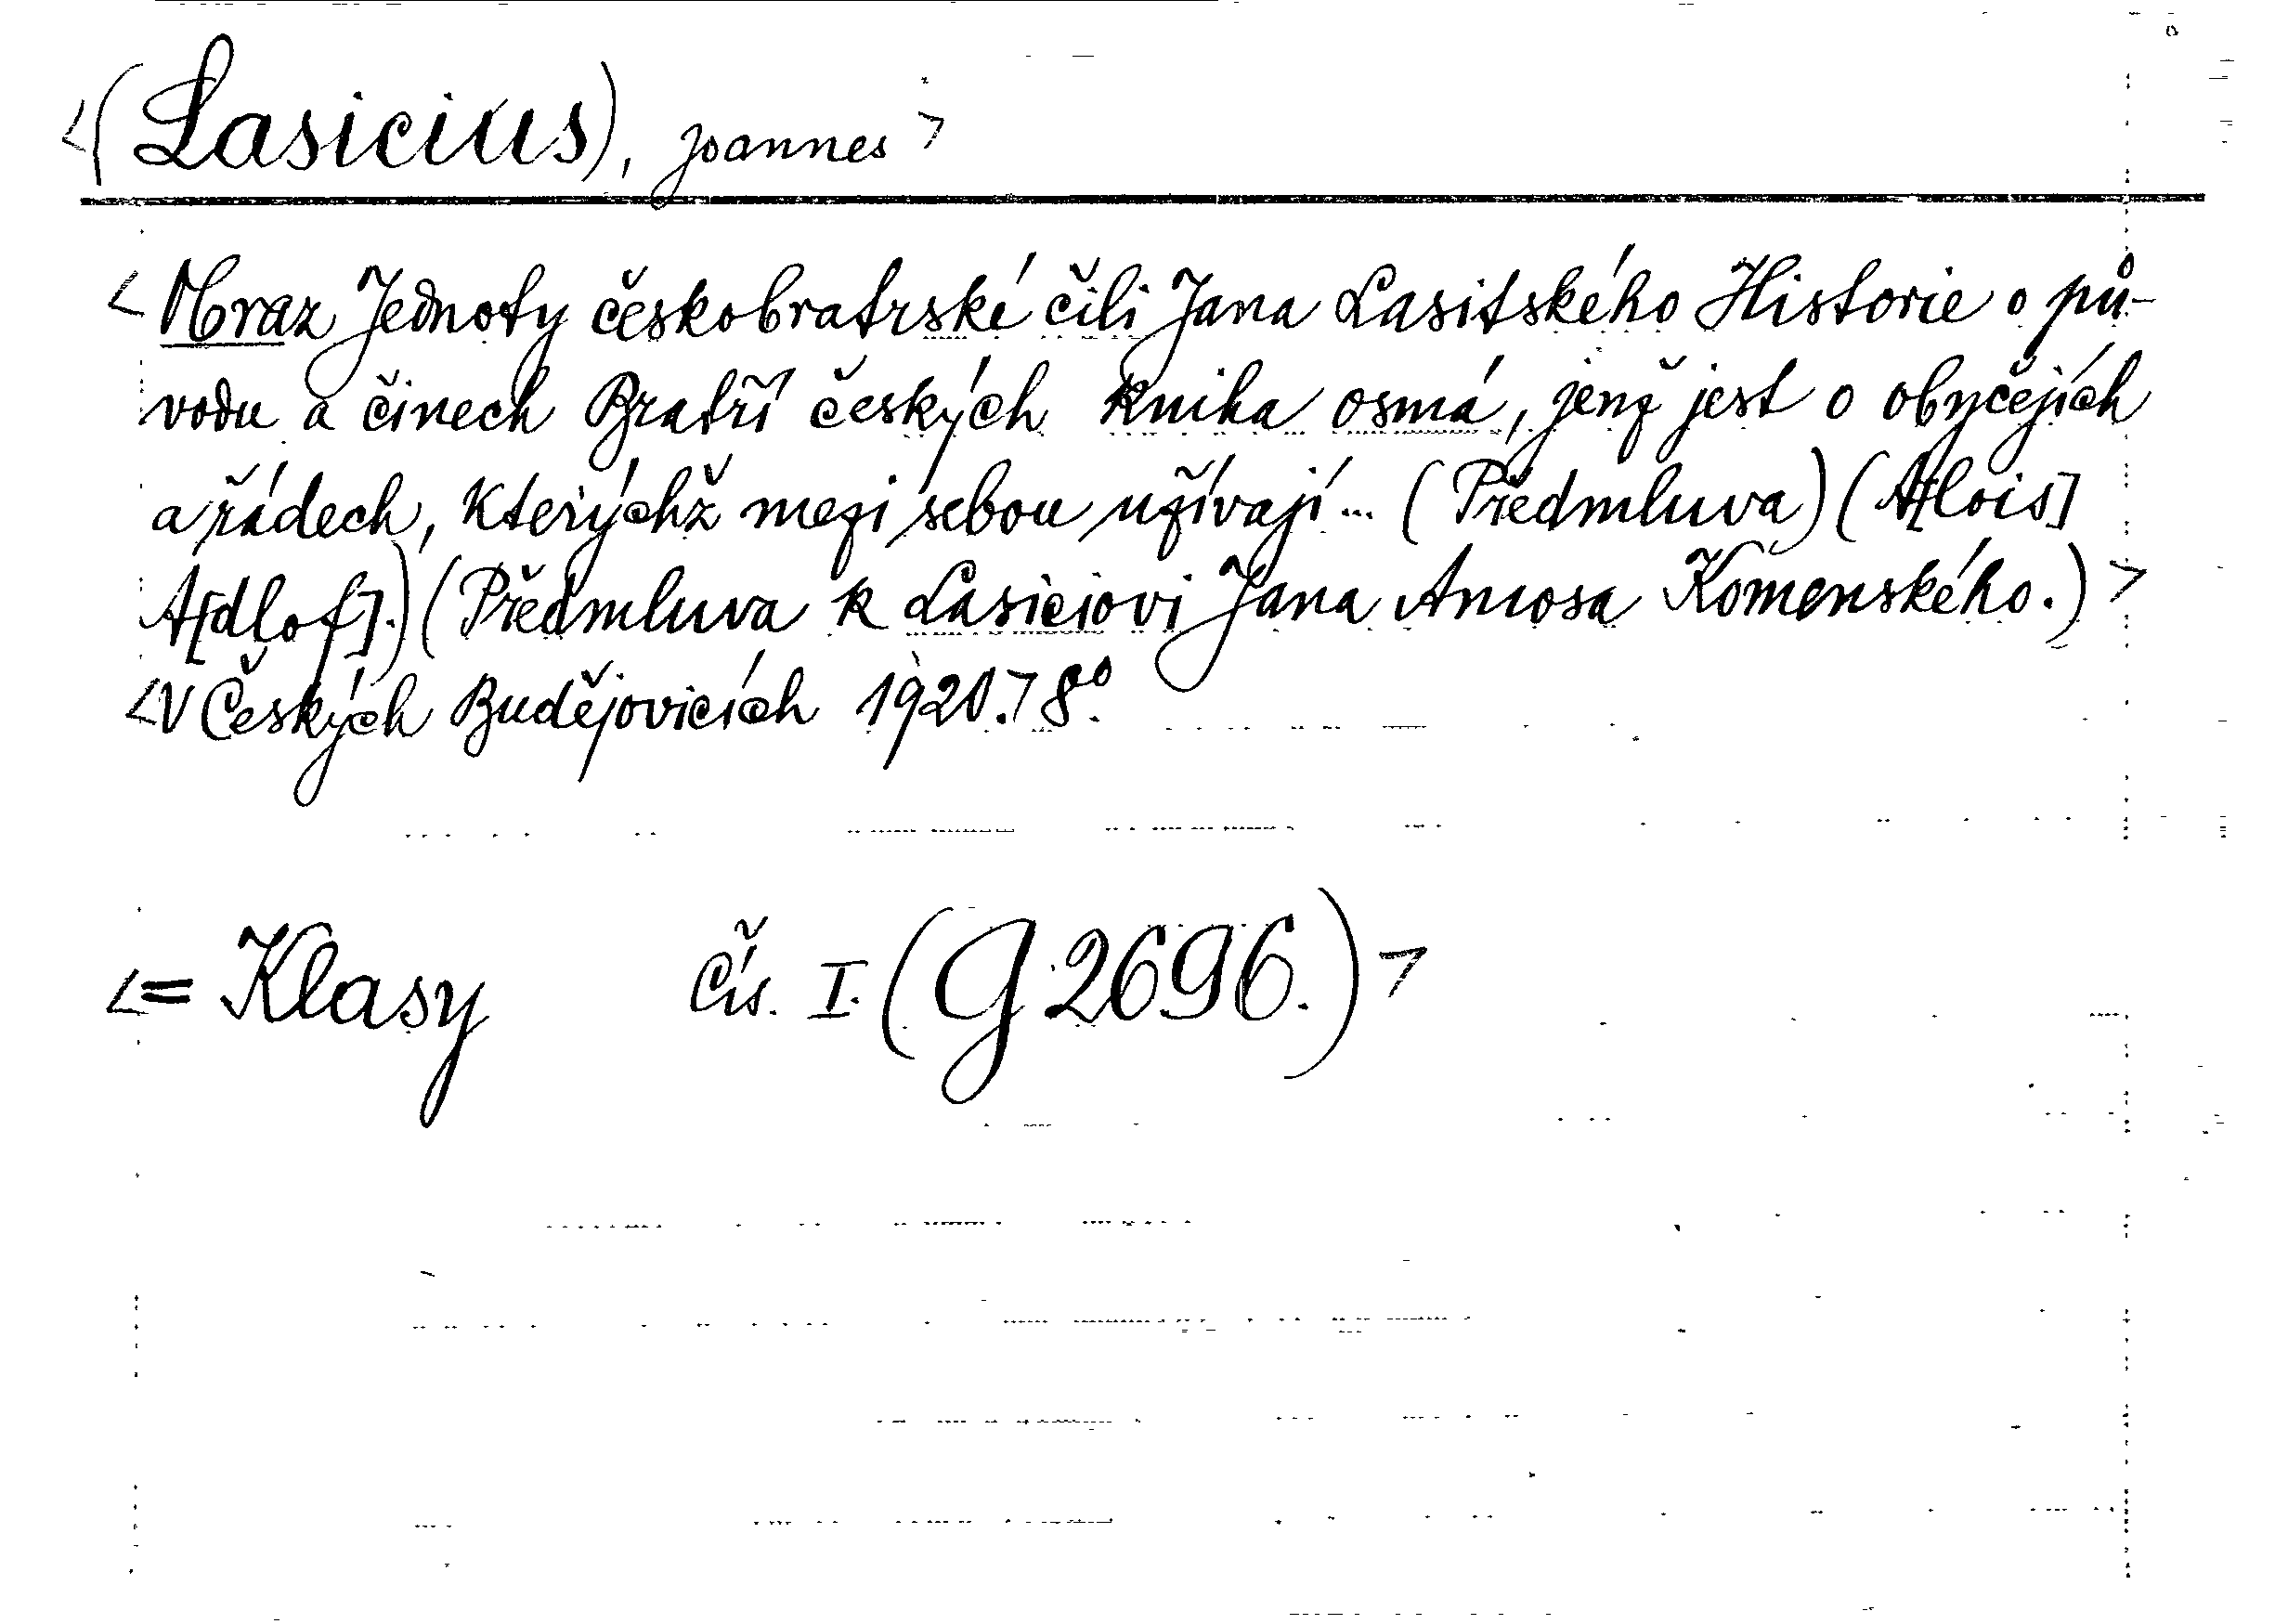 <(Lasicius), Joannes>
<Mraz Jednoty českobratrské čili Jana Lasitského Historie o pů-
vodu a činech Bratří českých kniha osmá, jenž jest o obyčejích
a řádech, kterýchž mezi sebou užívají... (Předmluva) (A[lois]
A[dlof].) (Předmluva k Lasiciovi Jana Amosa Komenského.)>
<V Českých Budějovicích 1920.> 8°.
<= Klasy čís. I. (G 2696.)>